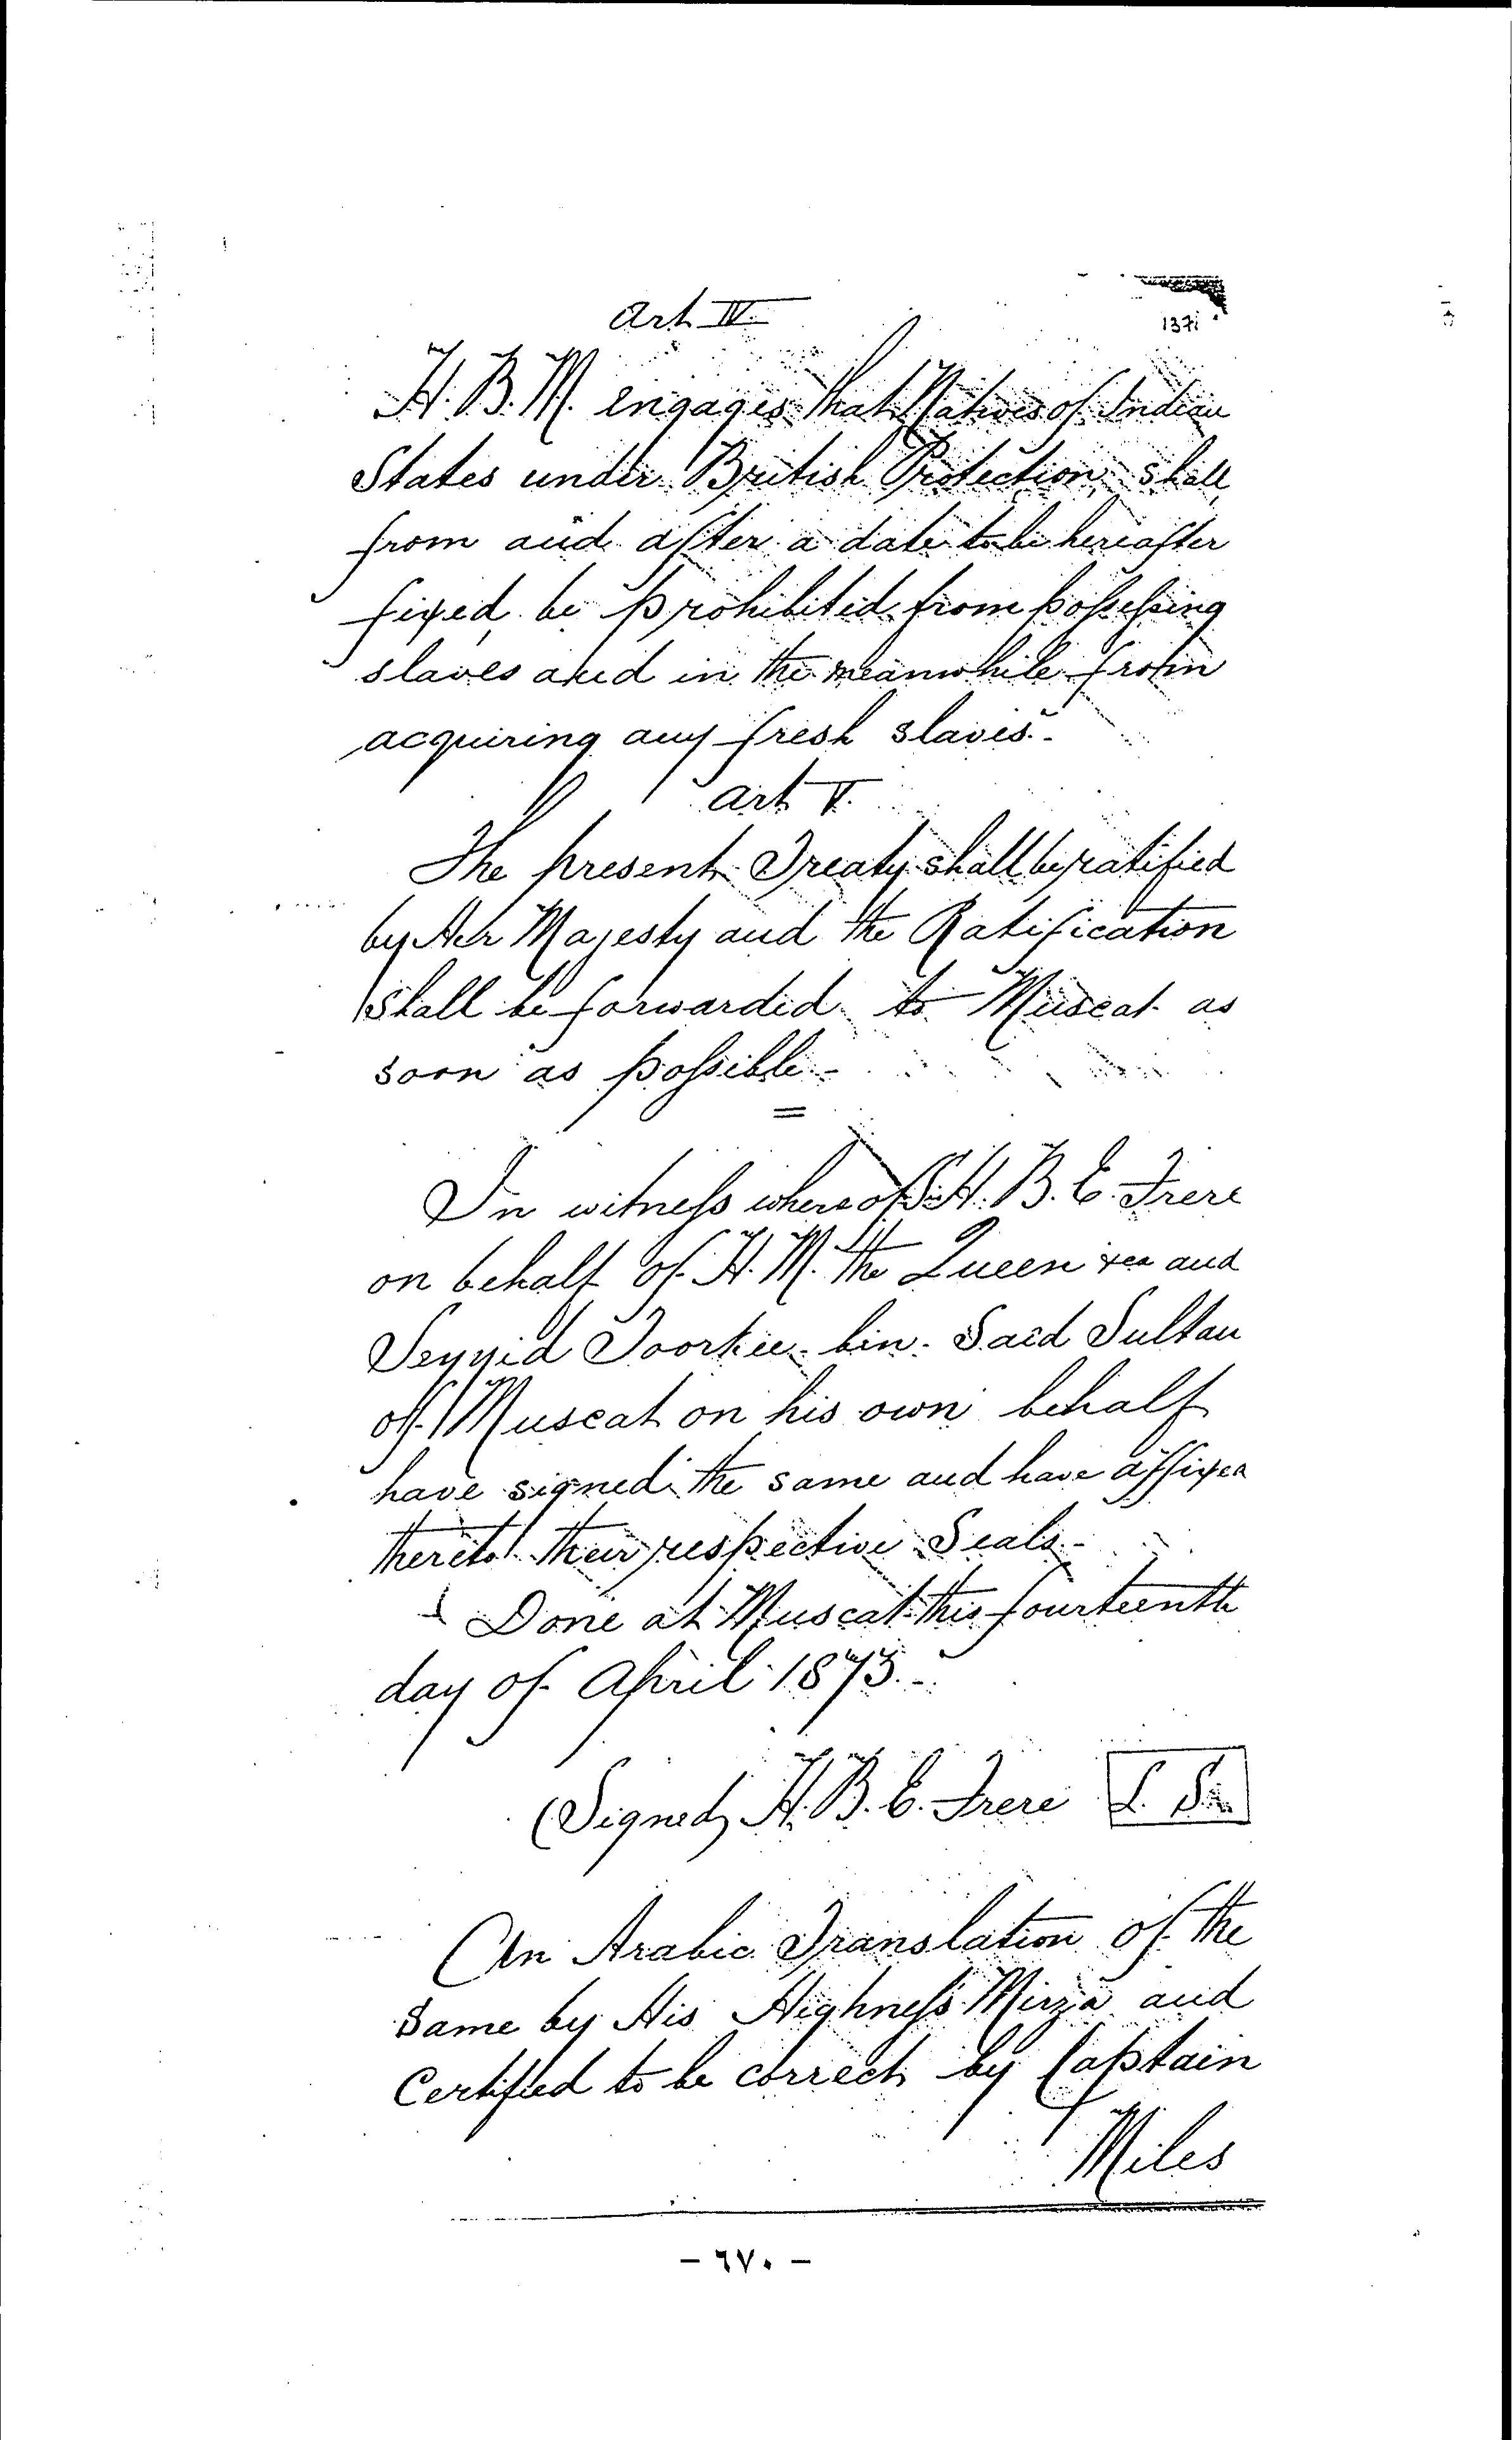 Art IV.
137
H. B. M. engages that Natives of Indian
States under British Protection shall,
from and after a date to be hereafter
fixed, be prohibited from possessing
slaves and in the meanwhile from
acquiring any fresh slaves.-
Art V.
The present Treaty shall be ratified
by Her Majesty and the Ratification
shall be forwarded to Muscat as
soon as possible -
=
In witness whereof S. H. B. E. Frere
on behalf of H. M. the Queen &ca and
Seyyid Toorkee bin Saîd Sultan
of Muscat on his own behalf
have signed the same and have affixed
thereto their respective Seals -
Done at Muscat this fourteenth
day of April 1873. -
(Signed) H. B. E. Frere L. S.
An Arabic Translation of the
same by His Highness' Mirza and
Certified to be correct by Captain
Miles
- ٦٧٠ -